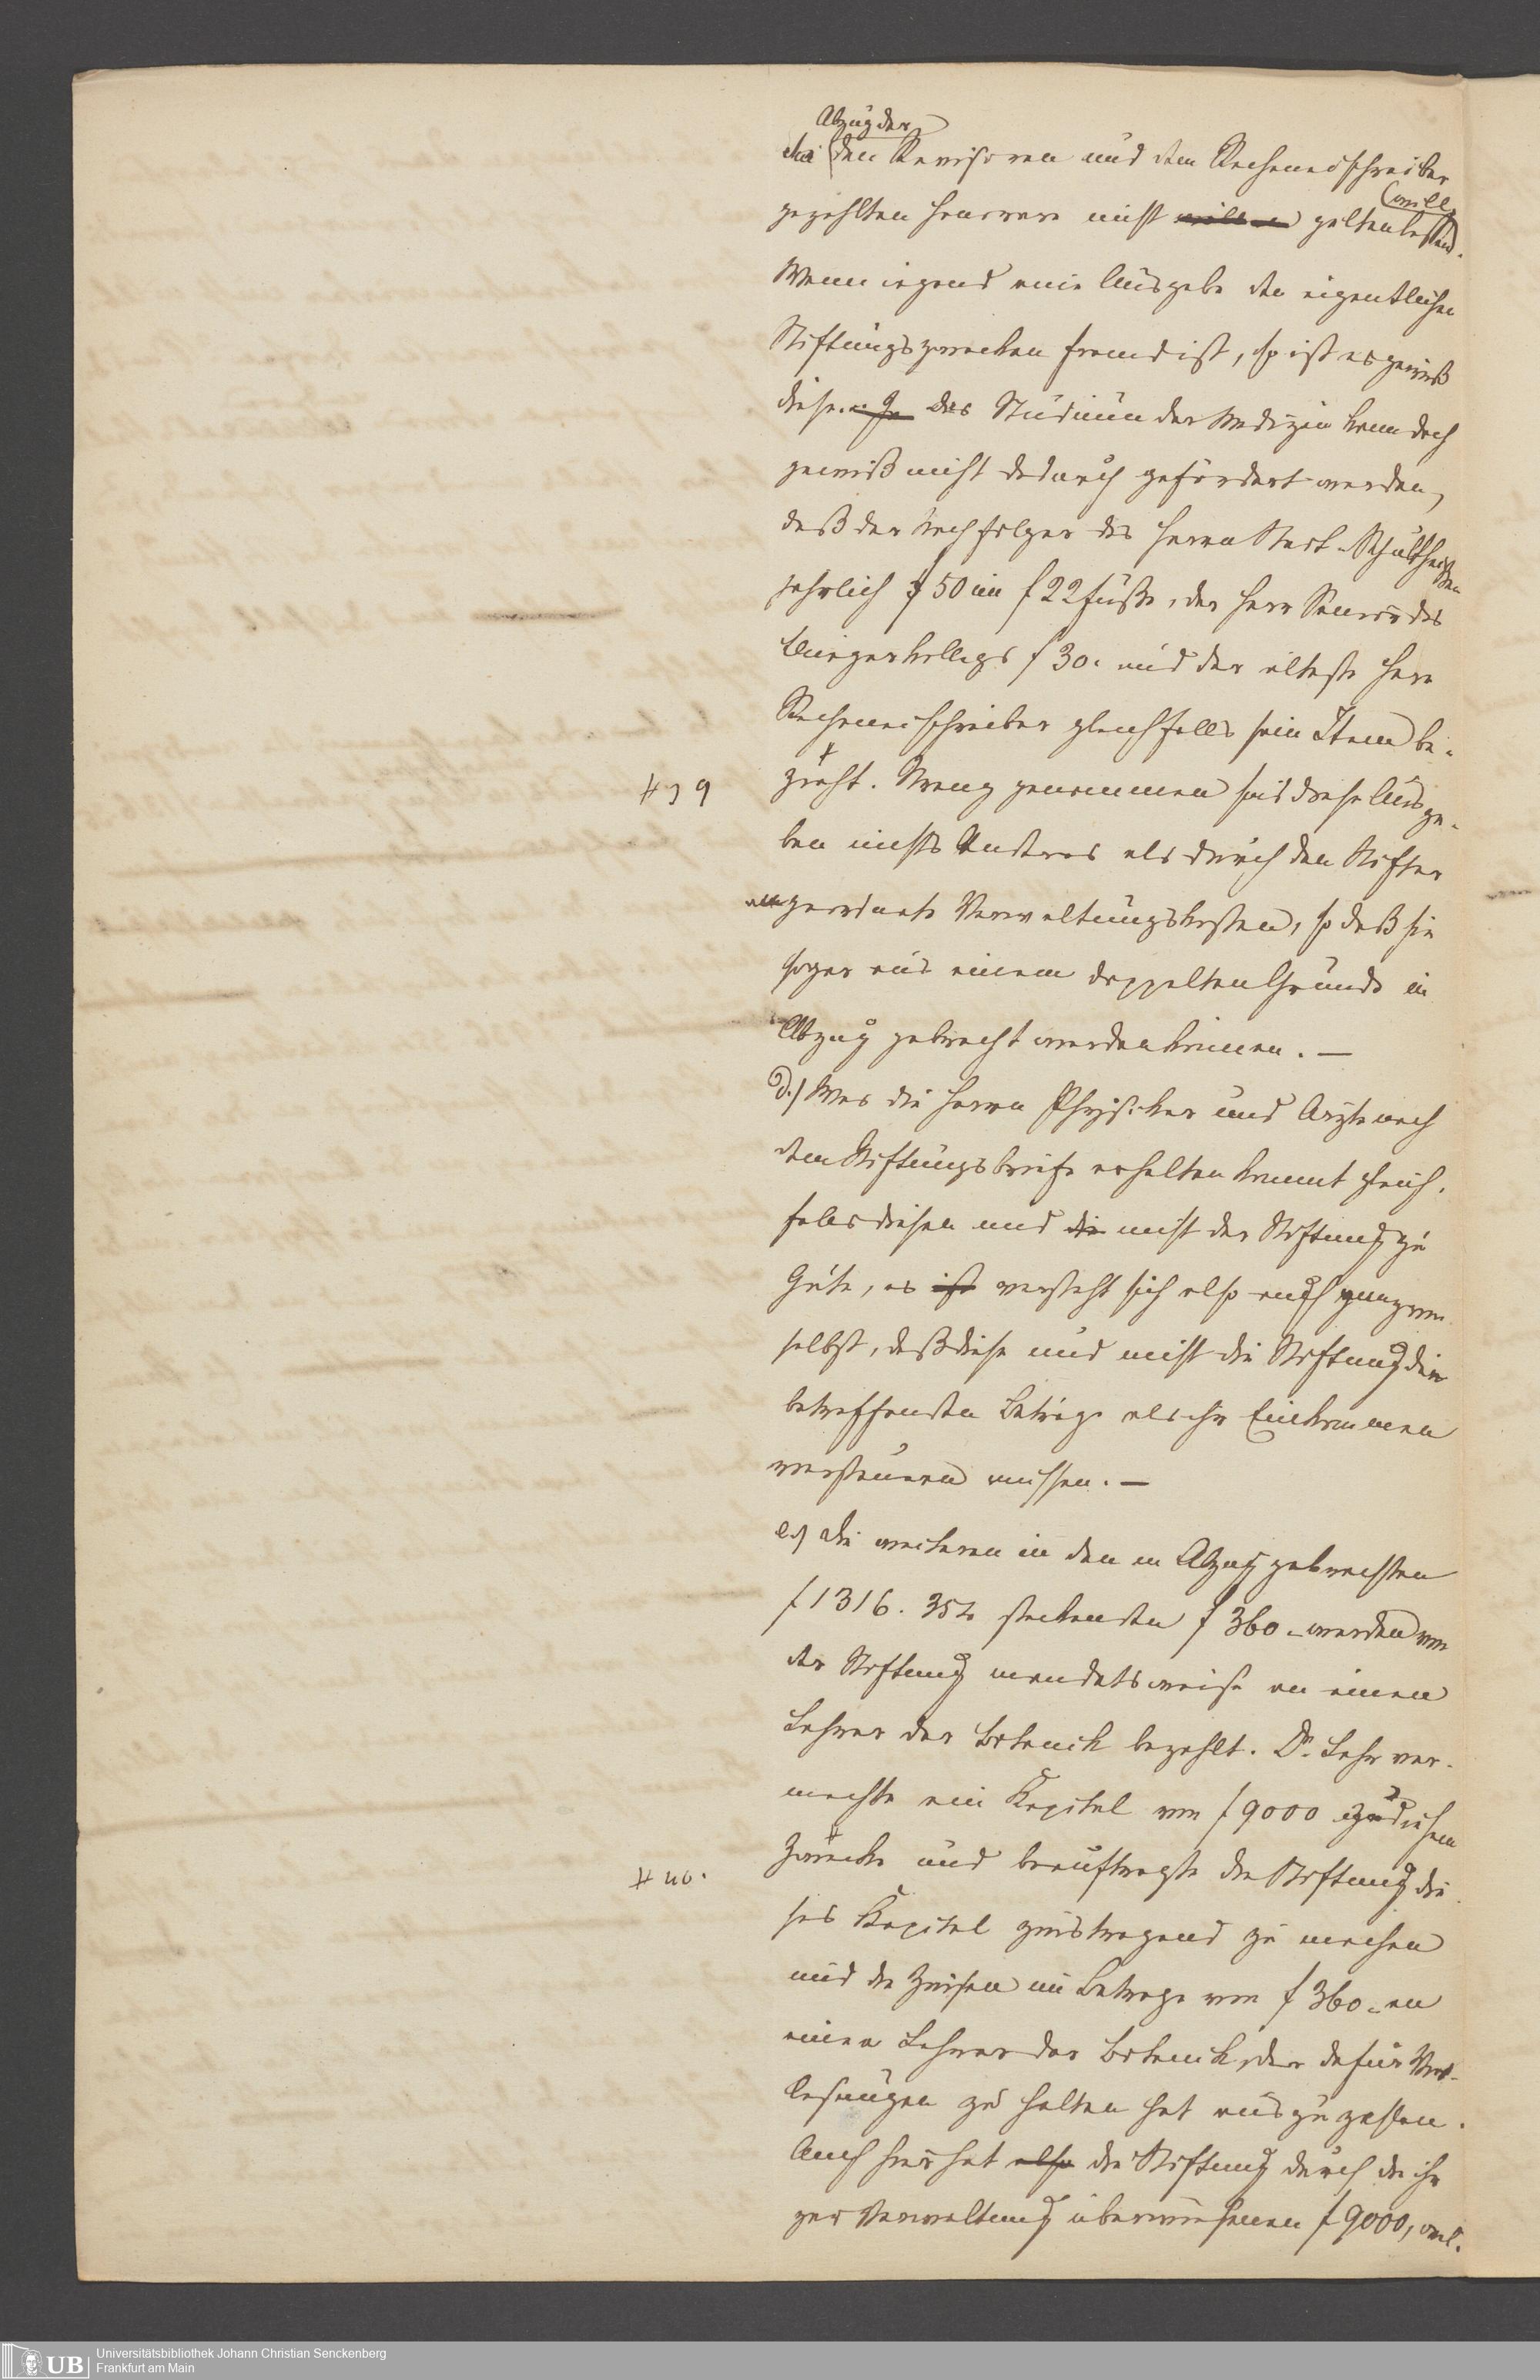 Abzug der
die den Revisoren und dem Rechneischreiber
(will
gezahlten Honorare nicht willen gelten lassen.
Wenn irgend eine Ausgabe den eigentlichen
Stiftungszwecken fremd ist, so ist es gewiß
diese. Ja Das Studium der Medizin kann doch
gewiß nicht dadurch gefördert werden,
daß der Nachfolger des Herrn Stadt-Schultheißen
jährlich f 50 im f 22 Fuße, der Herr Senior des
Bürgerkollegs f 30. und der älteste Herr
Rechneischreiber gleichfalls sein Item be-
# 39
zieht. Streng genommen sind diese Ausga-
ben nichts Anderes als durch den Stifter
angeordnete Verwaltungskosten, so daß sie
sogar aus einem doppelten Grunde in
Abzug gebracht werden können. —
d.) Was die Herrn Physiker und Ärzte nach
dem Stiftungsbriefe erhalten kommt
falls diesen und die nicht der Stiftung zu
Gute, es ist versteht sich also auch ganz von
selbst, daß diese und nicht die Stiftung die
betreffenden Beträge als ihr Einkommen
versteuern müssen. —
e.) Die weiteren in den in Abzug gebrachten
f 1316. 35 steckenden f 360. werden von
der Stiftung mandatsweise an einen
Lehrer der Botanik bezahlt. Dr. Lehr ver-
machte ein Kapital von f 9000 zu diesem
# 40.
Zwecke und beauftragte die Stiftung die-
ses Kapital zinstragend zu machen
und die Zinsen im Betrage von f 360. an
einen Lehrer der Botanik, der dafür Vor-
lesungen zu halten hat auszuzahlen.
Auch hier hat also die Stiftung durch die ihr
zur Verwaltung überwiesenen f 9000, wel-
UB
Universitätsbibliothek Johann Christian Senckenberg
Frankfurt am Main